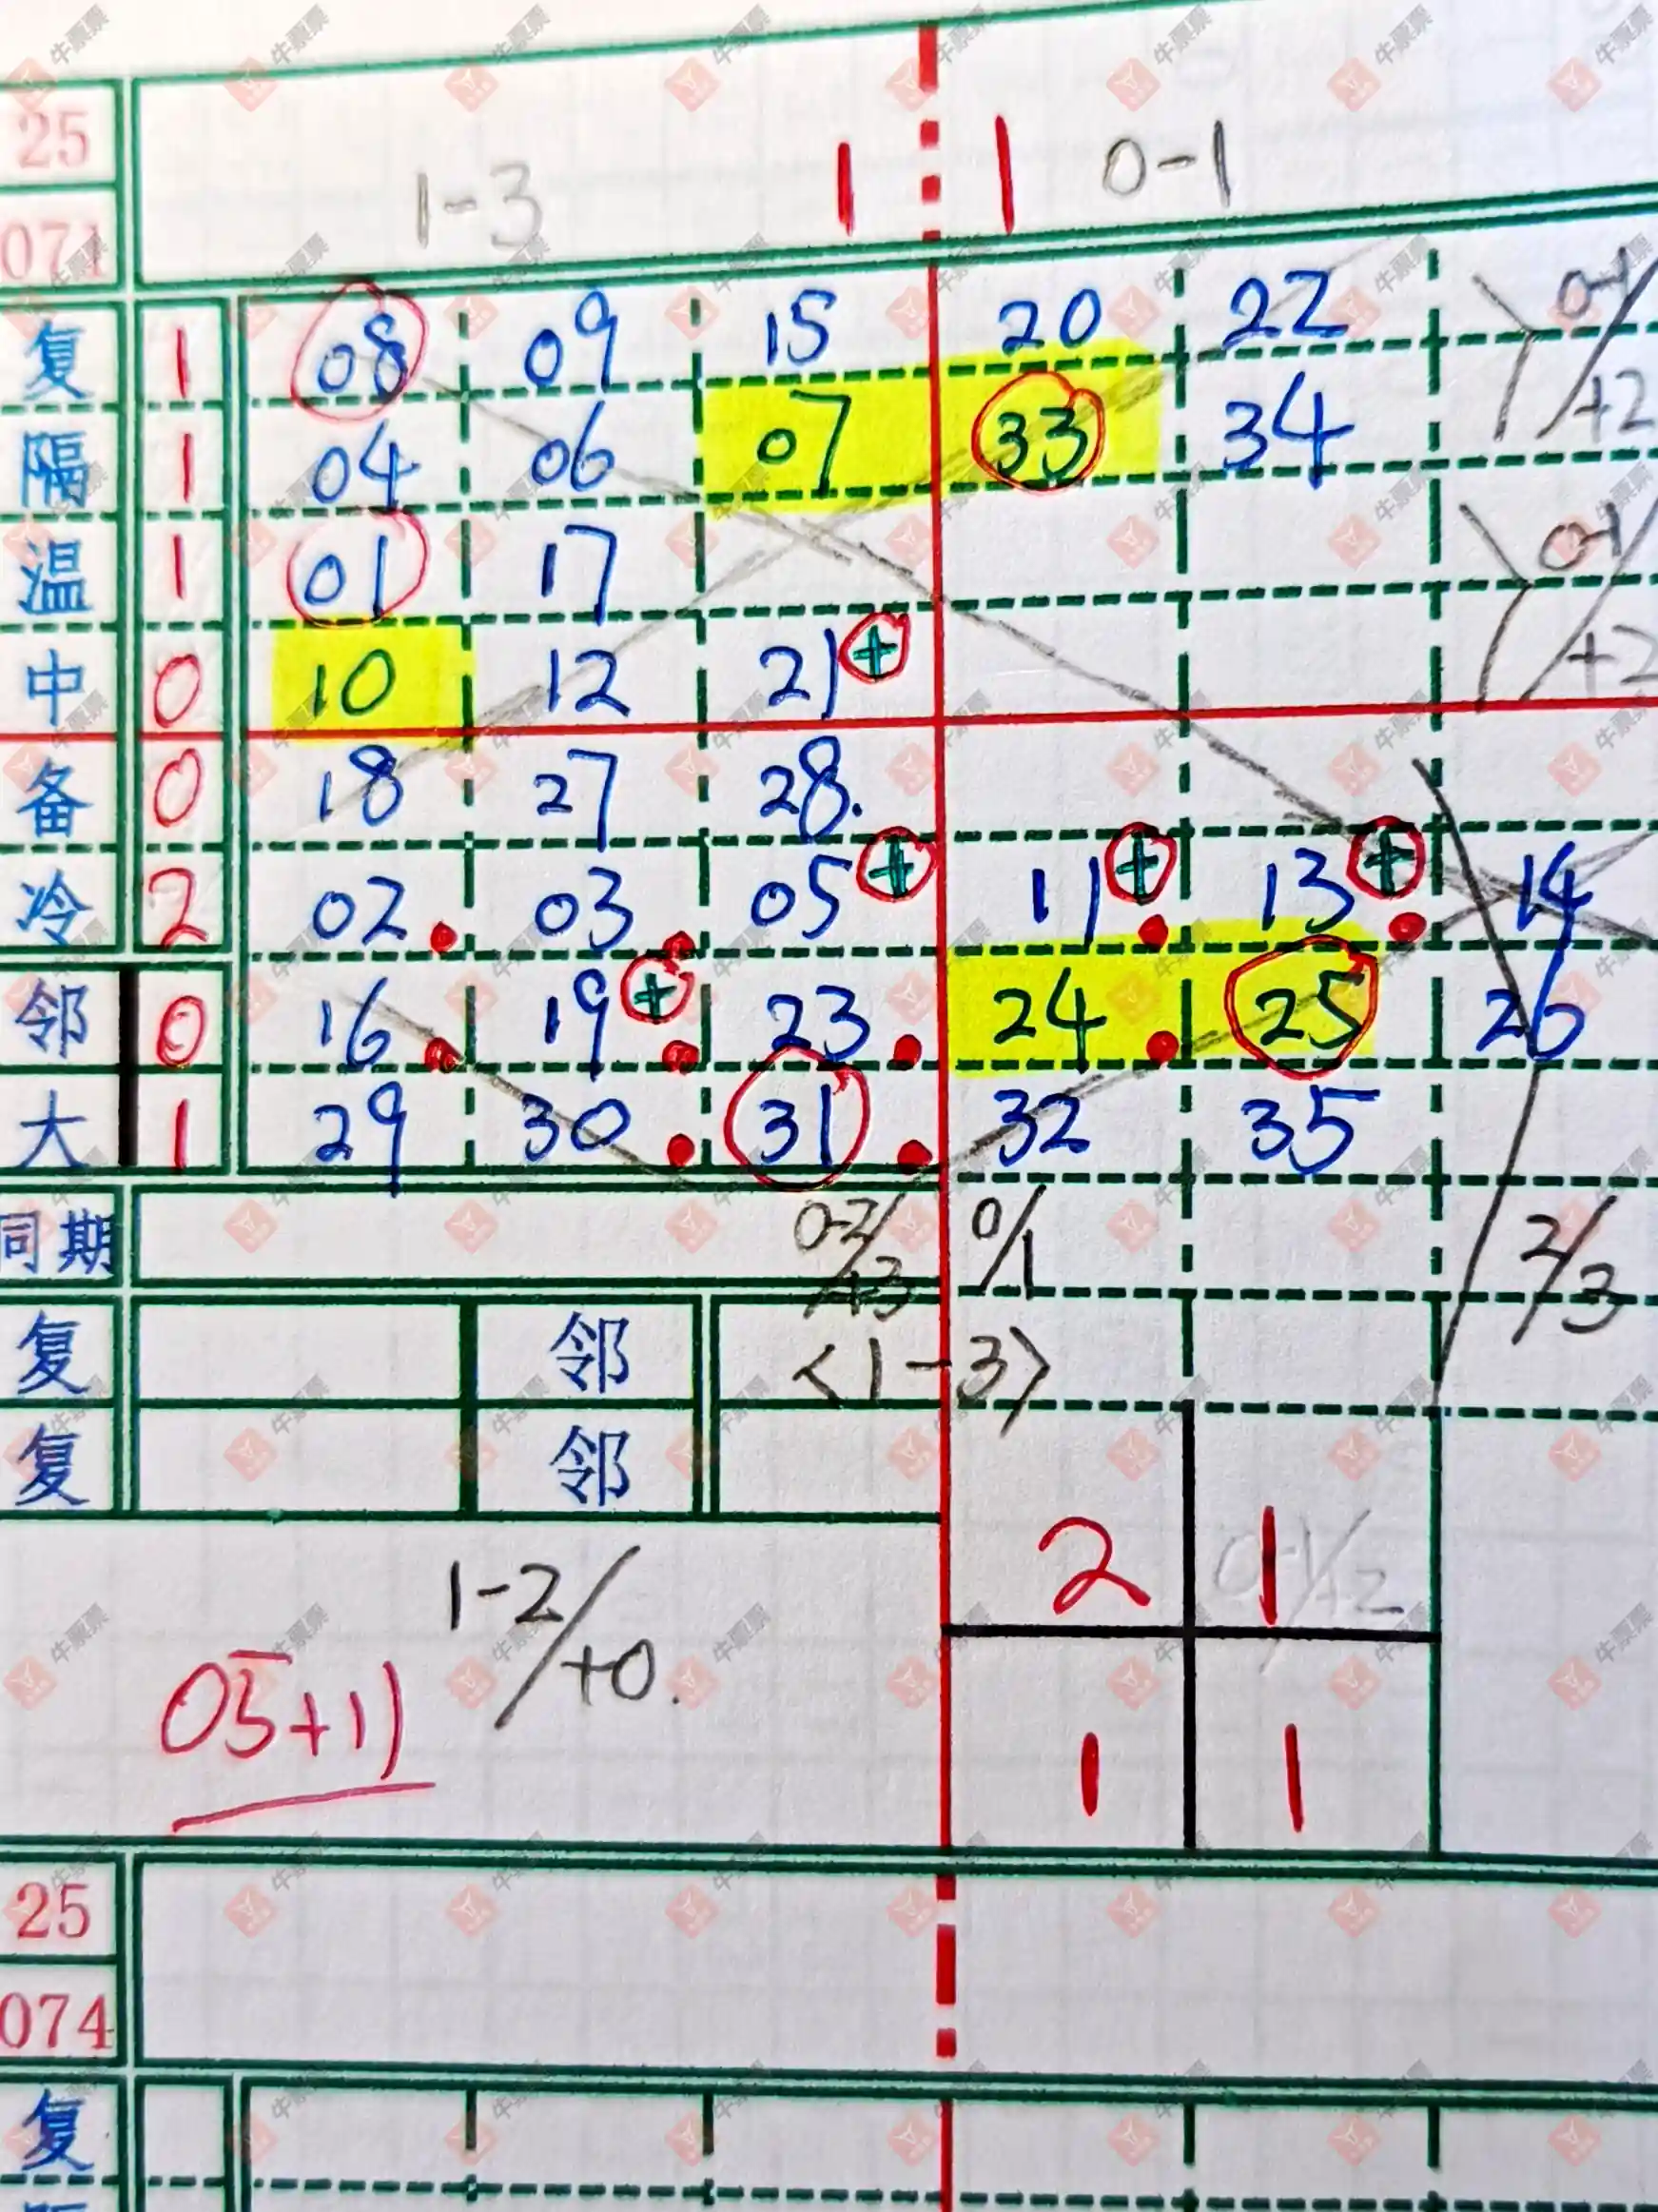 25
071
1-3 1 1 0-1
复 1 08 09 15 20 22 0-1/+2
隔 1 04 06 07 33 34
温 1 01 17 0-1/+2
中 0 10 12 21+
备 0 18 27 28.
冷 2 02 03 05+ 11+ 13+ 14
邻 0 16 19+ 23 24 25 26
大 1 29 30 31 32 35
同期 0-2/+3 0/1 2/3
复 邻 <1-3>
复 邻
1-2/+0. 2 1 0-1/+2
05+11 1 1
25
074
复
牛票票